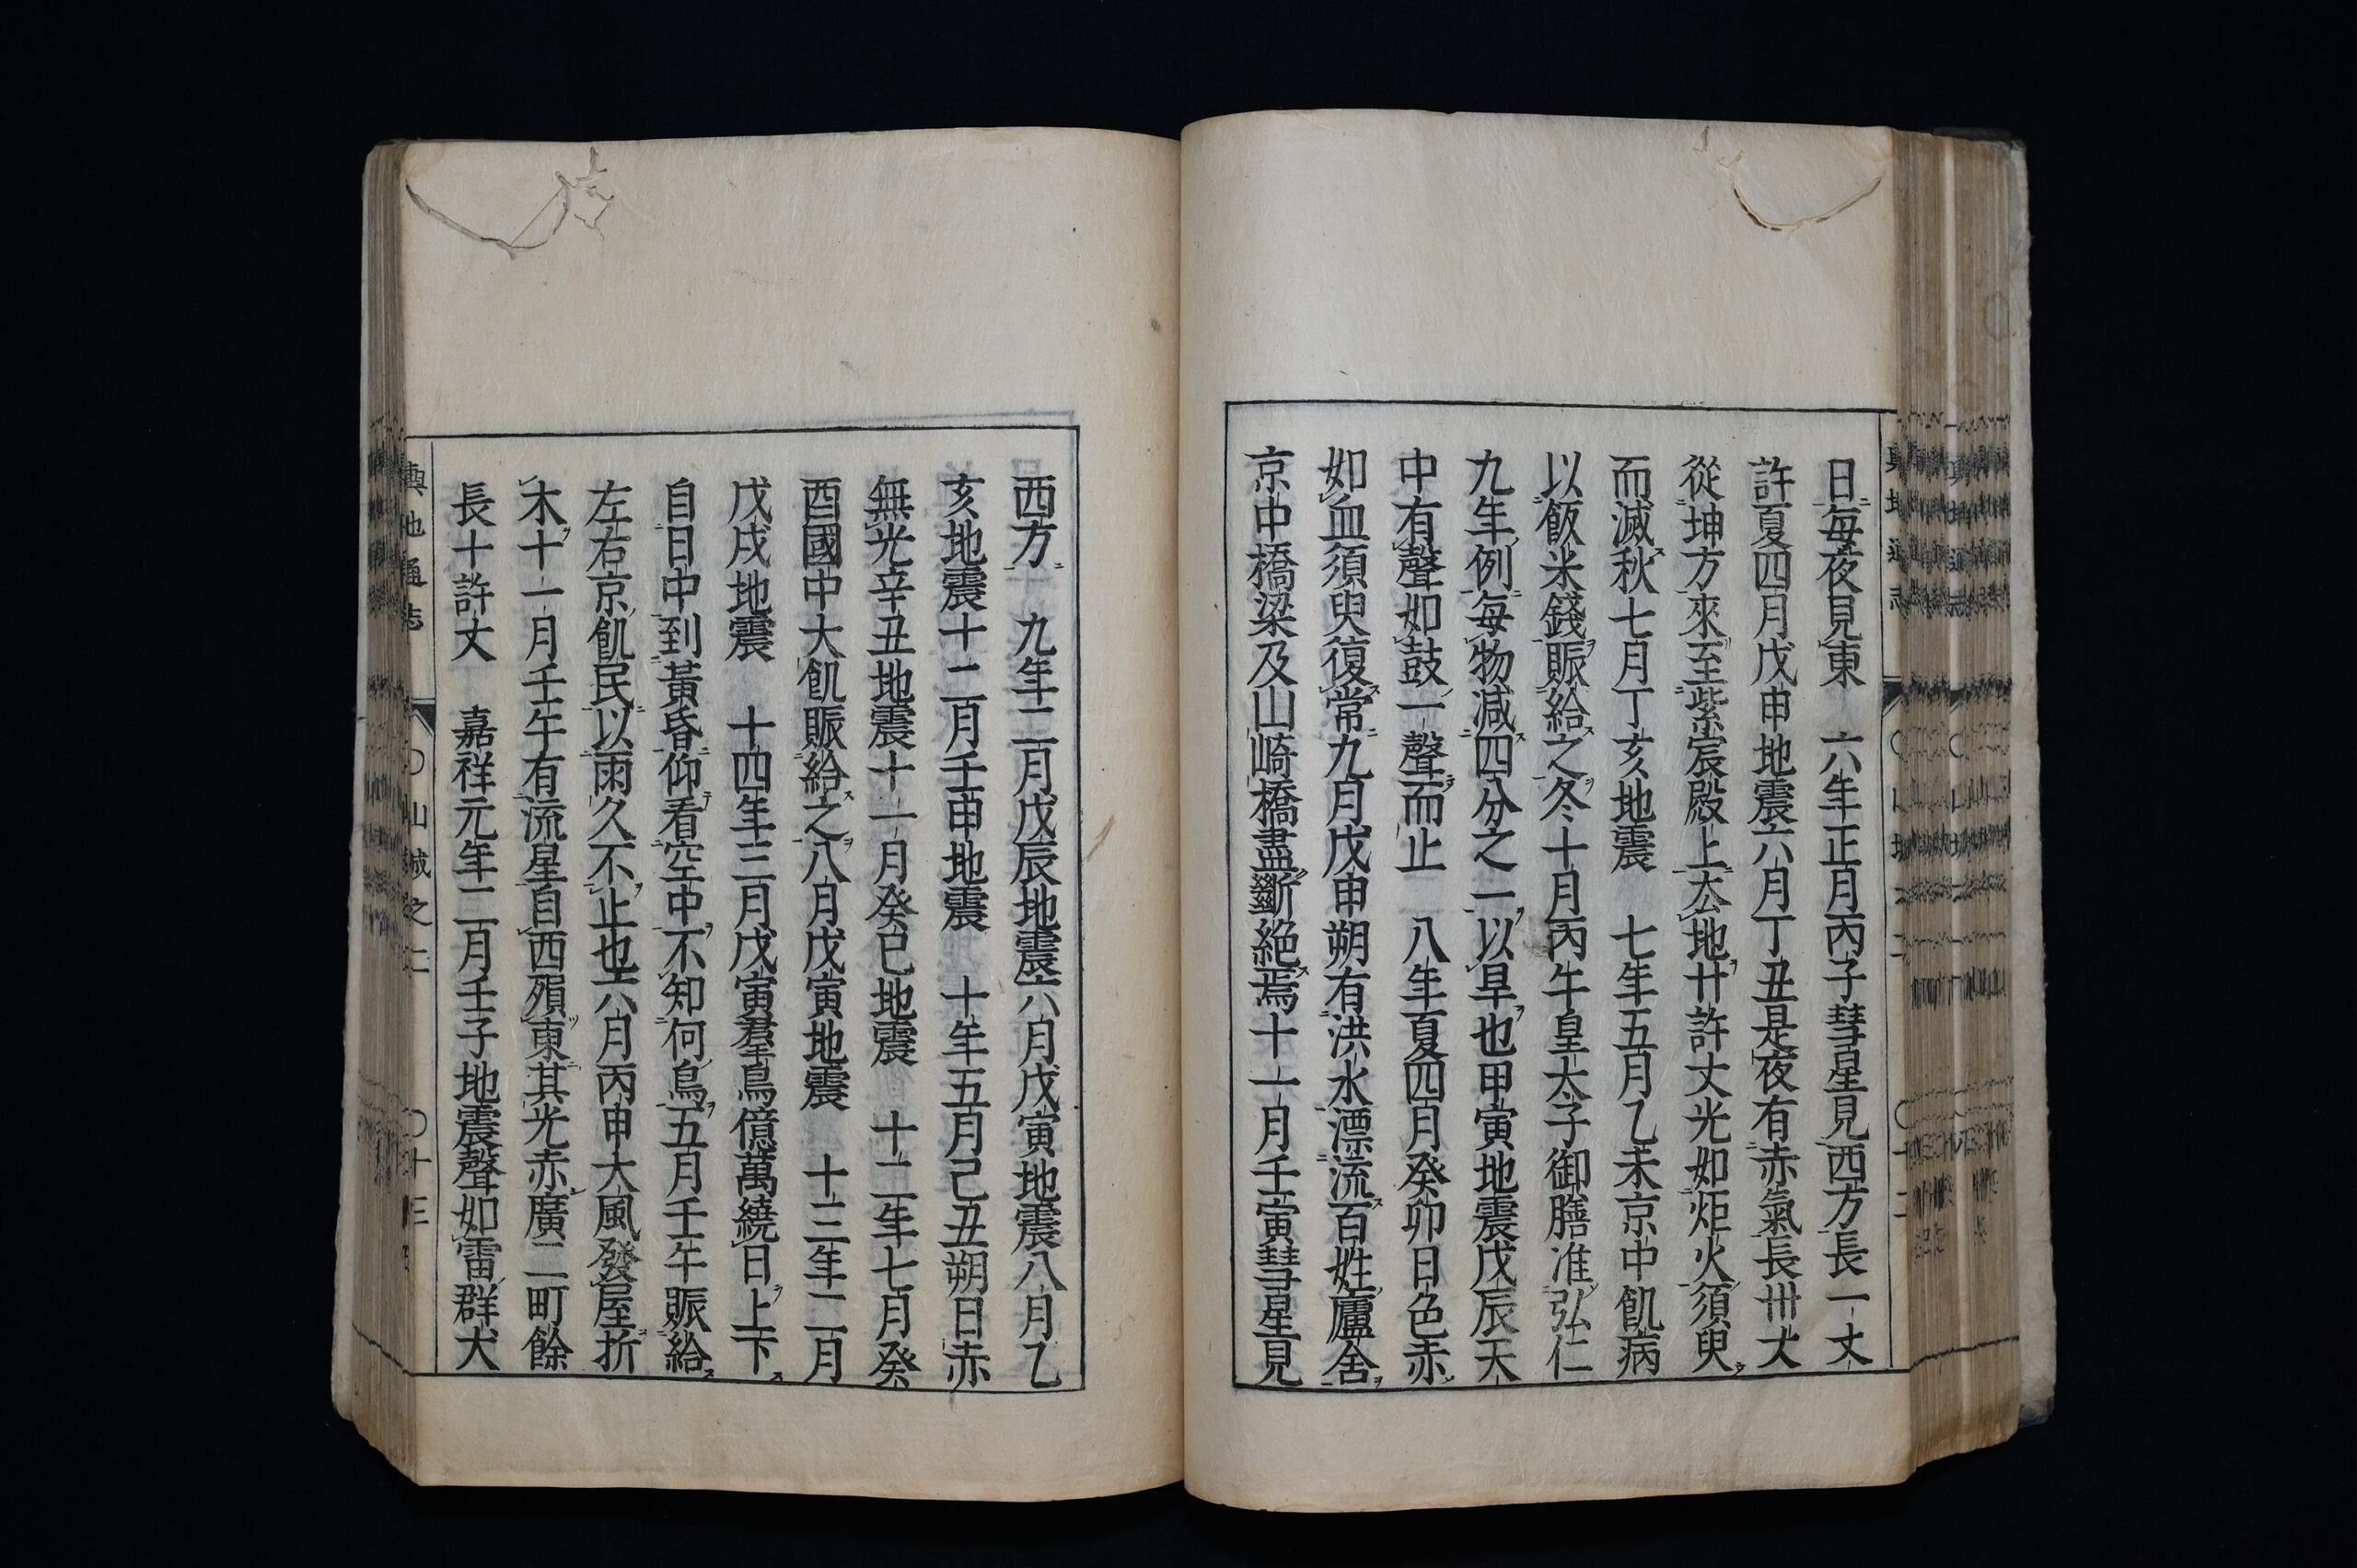 日每夜見東　六年正月丙子彗星見西方長一丈
許夏四月戊申地震六月丁丑是夜有赤氣長卅丈
從坤方來至紫宸殿上去地廿許丈光如炬火須臾
而滅秋七月丁亥地震　七年五月乙未京中飢病
以飯米錢賑給之冬十月丙午皇太子御膳准弘仁
九年例每物減四分之一以旱也甲寅地震戊辰天
中有聲如鼓一聲而止　八年夏四月癸卯日色赤
如血須臾復常九月戊申朔有洪水漂流百姓廬舍
京中橋梁及山崎橋盡斷絶焉十一月壬寅彗星見
西方　九年二月戊辰地震六月戊寅地震八月乙
亥地震十二月壬申地震　十年五月己丑朔日赤
無光辛丑地震十一月癸巳地震　十二年七月癸
酉國中大飢賑給之八月戊寅地震　十三年二月
戊戌地震　十四年三月戊寅羣鳥億萬繞日上下
自日中到黃昏仰看空中不知何鳥五月壬午賑給
左右京飢民以雨久不止也六月丙申大風發屋折
木十一月壬午有流星自西殞東其光赤廣二町餘
長十許丈　嘉祥元年二月壬子地震聲如雷群犬
輿地通志　〇山城之二　〇十三